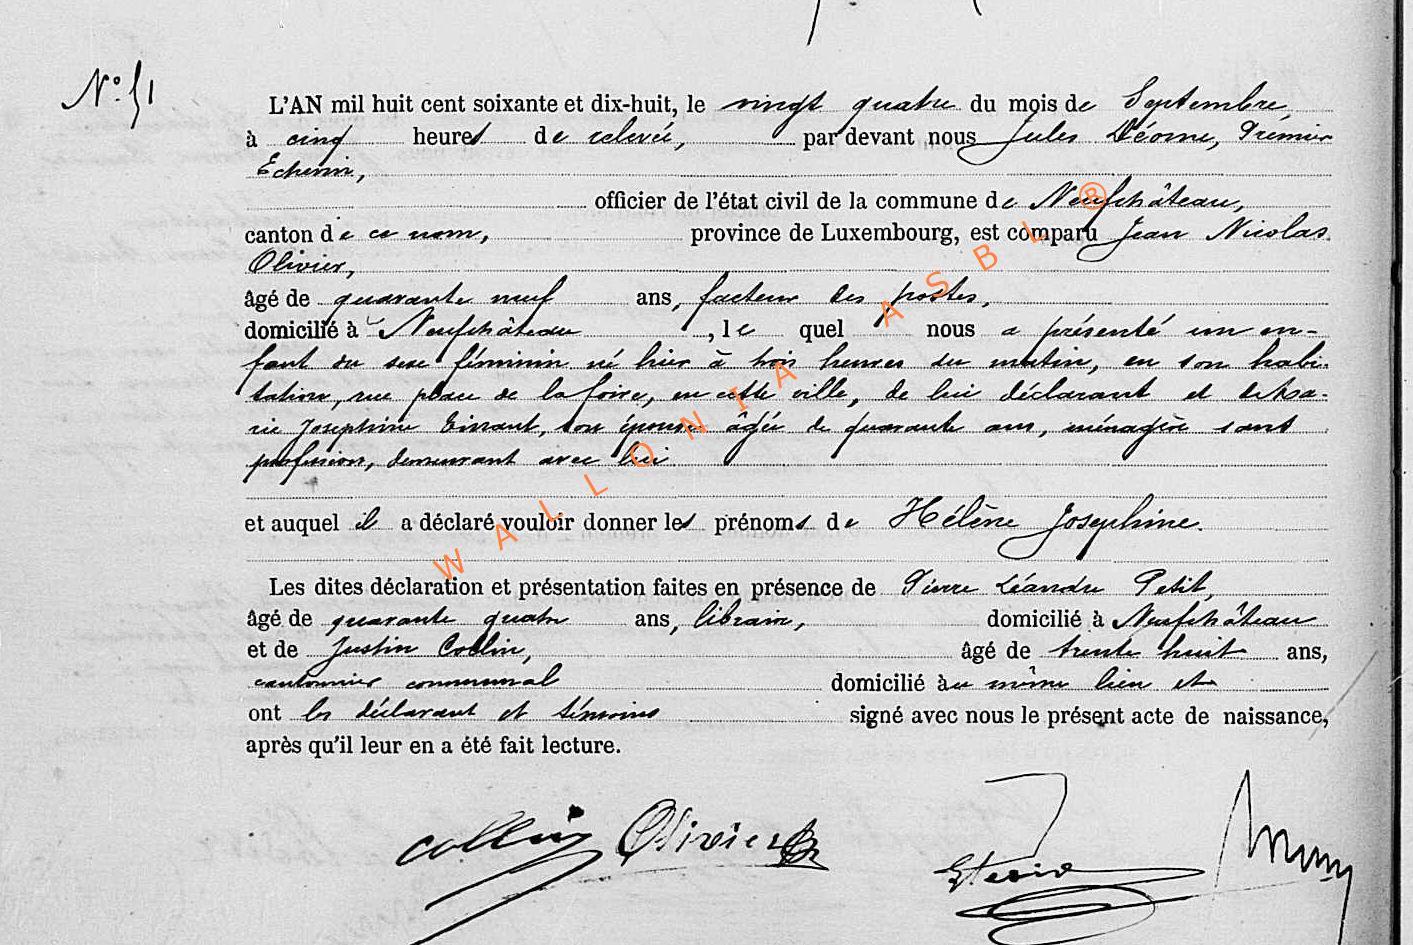 N° 51
L'AN mil huit cent soixante et dix-huit, le vingt quatre du mois de Septembre
à cinq heures de relevée, par devant nous Jules Déome, Premier
Echevin,
officier de l'état civil de la commune de Neufchâteau,
canton de ce nom, province de Luxembourg, est comparu Jean Nicolas
Olivier,
âgé de quarante neuf ans, facteur des postes,
domicilié à Neufchâteau, le quel nous a présenté un en-
fant du sexe féminin né hier à trois heures du matin, en son habi-
tation, rue place de la foire, en cette ville, de lui déclarant et de Ma-
rie Josephine, son épouse âgée de quarante ans, ménagère sans
profession, demeurant avec lui
et auquel il a déclaré vouloir donner les prénoms de Hélène Josephine.
Les dites déclaration et présentation faites en présence de Pierre Léandre Petit,
âgé de quarante quatre ans, libraire, domicilié à Neufchâteau
et de Justin Collin, âgé de trente huit ans,
cantonnier communal domicilié au même lieu et
ont les déclarant et témoins signé avec nous le présent acte de naissance,
après qu'il leur en a été fait lecture.
Collin Olivier
WALLONIA ASBL ®